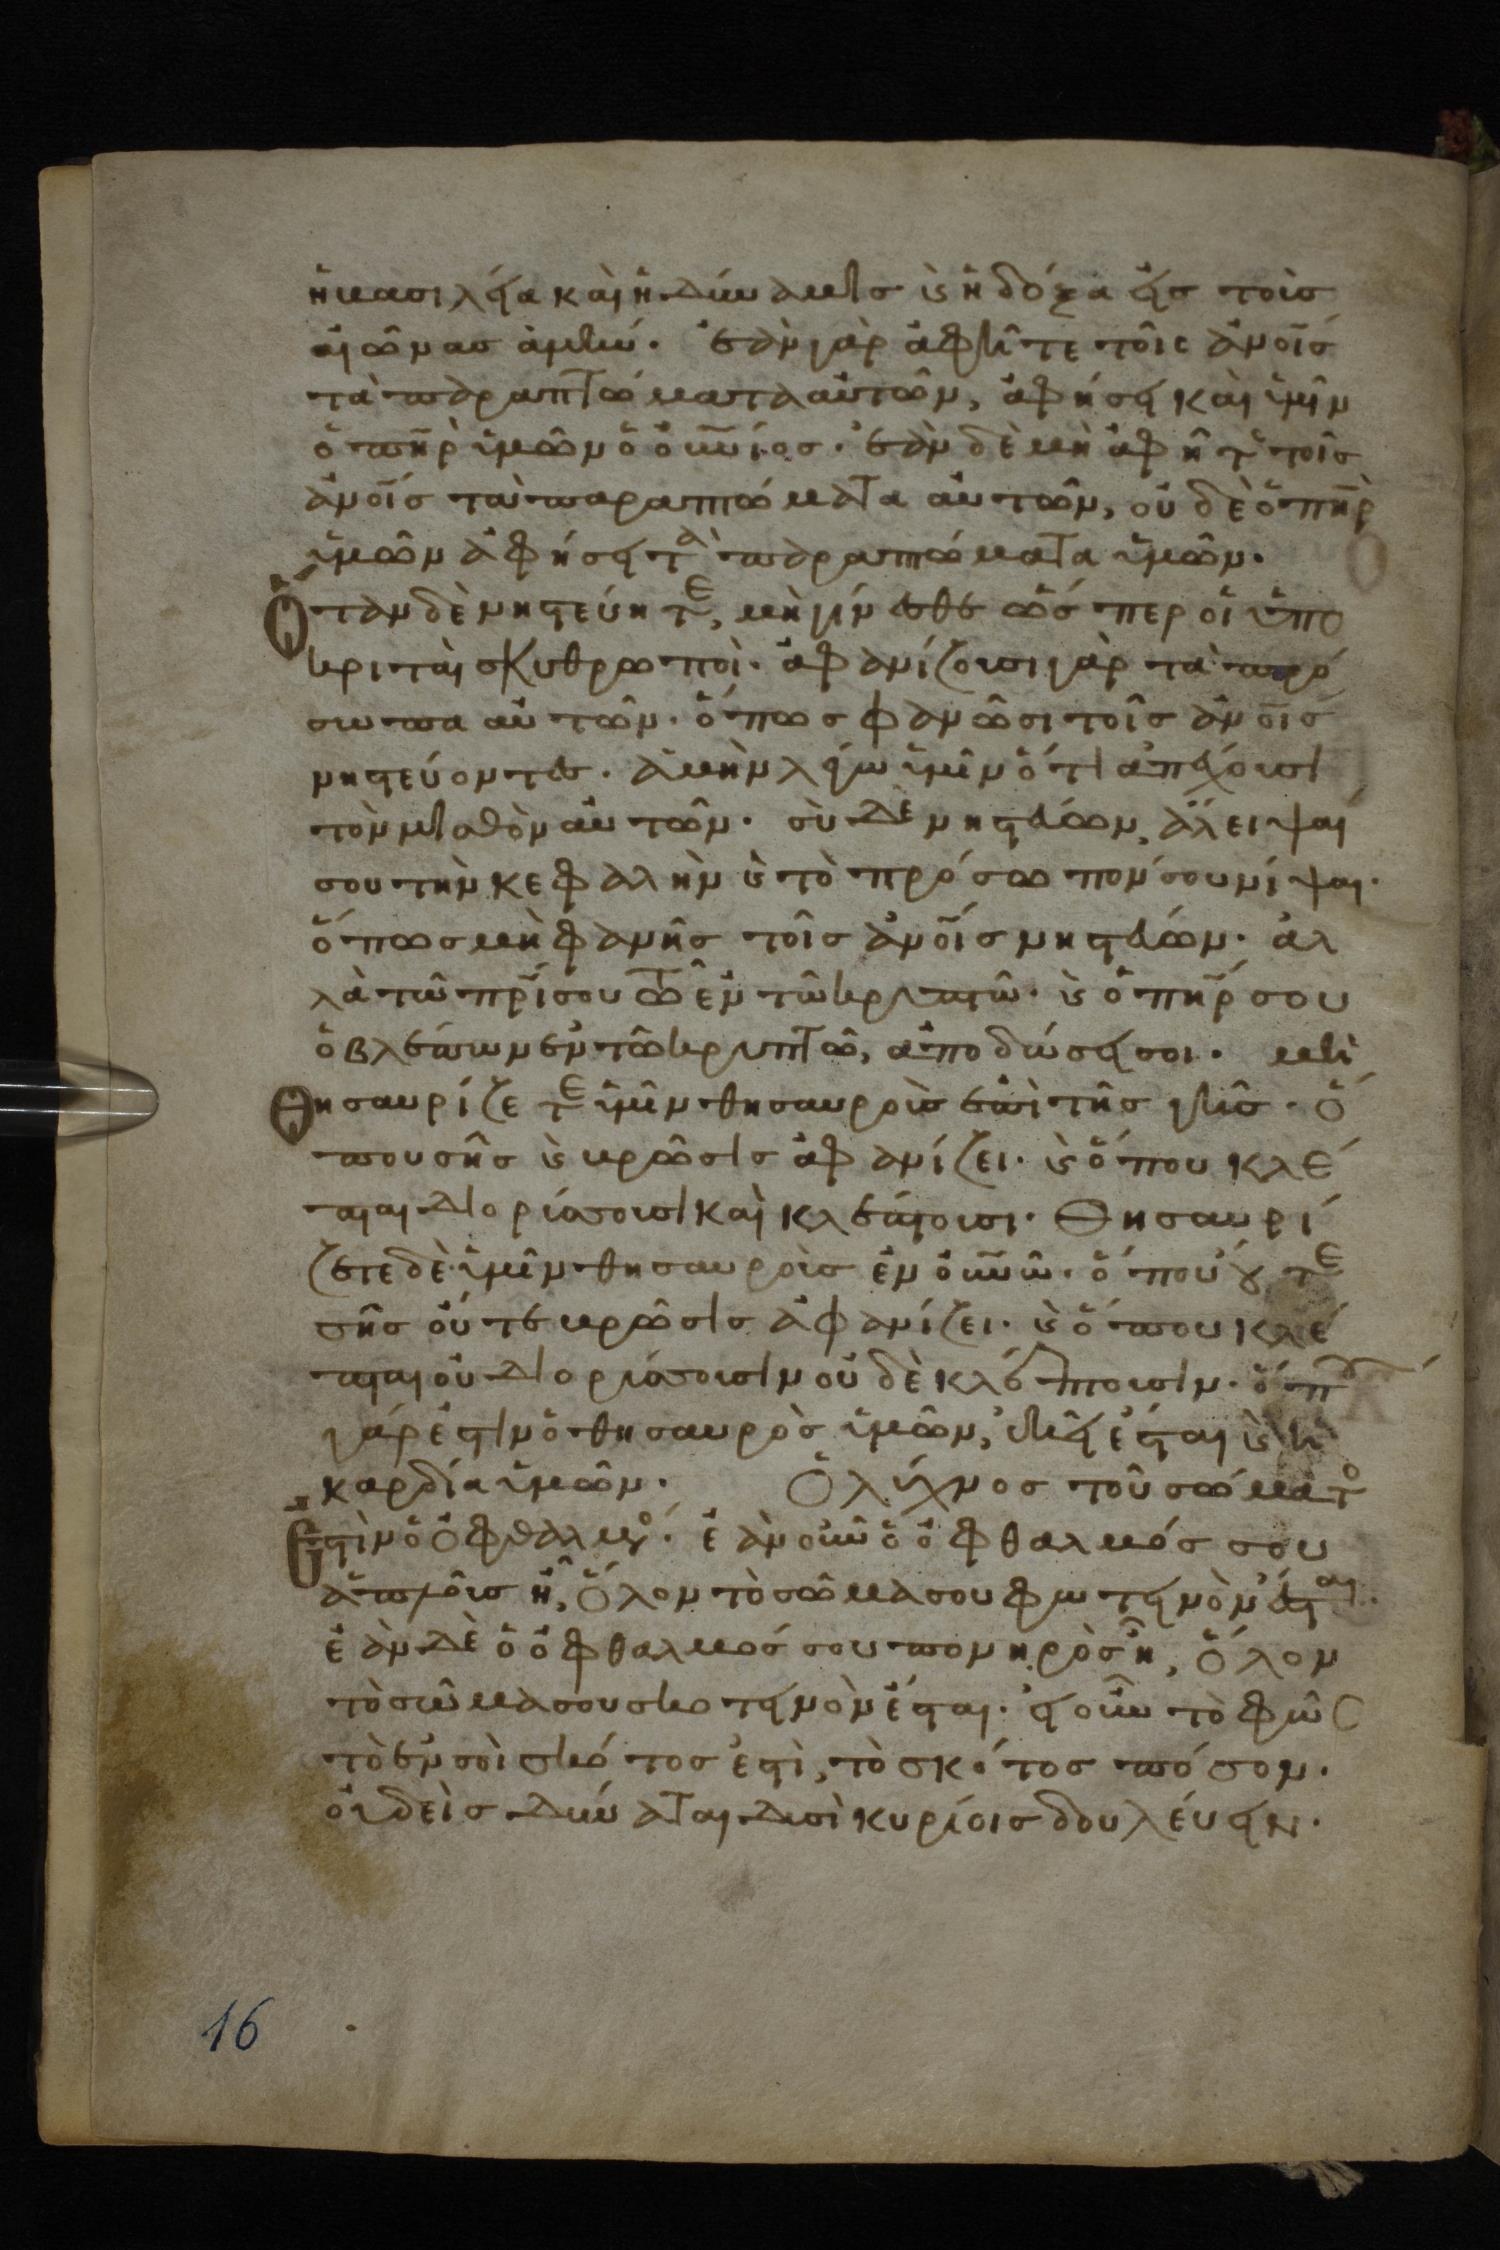 ἡ βασιλεία καὶ ἡ δύναμις ϗ ἡ δόξα εἰς τοὺς
αἰῶνας ἀμήν. ἐὰν γὰρ ἀφῆτε τοῖς ἀνοῖς
τὰ παραπτώματα αὐτῶν, ἀφήσει καὶ ὑμῖν
ὁ πηρ ὑμῶν ὁ οὐνιος. ἐὰν δὲ μὴ ἀφῆτε τοῖς
ἀνοις τὰ παραπτώματα αὐτῶν, οὐδὲ ὁ πηρ
ὑμῶν ἀφήσει τὰ παραπτώματα ὑμῶν.
Ὅταν δὲ νηστεύητε, μὴ γίνεσθε ὥσπερ οἱ ὑπο
κριταὶ σκυθρωποί. ἀφανίζουσι γὰρ τὰ πρό
σωπα αὐτῶν. ὅπως φανῶσι τοῖς ἀνοις
νηστεύοντες. ἀμὴν λέγω ὑμῖν ὅτι ἀπέχουσι
τὸν μισθὸν αὐτῶν. σὺ δὲ νηστεύων, ἄλειψαί
σου τὴν κεφαλὴν ϗ τὸ πρόσωπόν σου νίψαι.
ὅπως μὴ φανῇς τοῖς ἀνοις νηστεύων. ἀλ
λὰ τῷ πρί σου τῷ ἐν τῷ κρυπτῷ. ϗ ὁ πηρ σου
ὁ βλέπων ἐν τῷ κρυπτῷ, ἀποδώσει σοι. μὴ
Θησαυρίζετε ὑμῖν θησαυροὺς ἐπὶ τῆς γῆς. ὅ
που σὴς ϗ βρῶσις ἀφανίζει. ϗ ὅπου κλέ
πται διορύσσουσι καὶ κλέπτουσι. Θησαυρί
ζετε δὲ ὑμῖν θησαυροὺς ἐν οὐνῷ. ὅπου οὔτε
σὴς οὔτε βρῶσις ἀφανίζει. ϗ ὅπου κλέ
πται οὐ διορύσσουσιν οὐδὲ κλέπτουσιν. ὅπου
γάρ ἐστιν ὁ θησαυρὸς ὑμῶν, ἐκεῖ ἔσται ϗ ἡ
καρδία ὑμῶν. Ὁ λύχνος τοῦ σώματος
Ἐστὶν ὁ ὀφθαλμός. ἐὰν οὖν ὁ ὀφθαλμός σου
ἁπλοῦς ᾖ, ὅλον τὸ σῶμα σου φωτεινὸν ἔσται.
ἐὰν δὲ ὁ ὀφθαλμός σου πονηρὸς ᾖ, ὅλον
τὸ σῶμα σου σκοτεινὸν ἔσται. εἰ οὖν τὸ φῶς
τὸ ἐν σοὶ σκότος ἐστὶ, τὸ σκότος πόσον.
οὐδεὶς δύναται δυσὶ κυρίοις δουλεύειν.
16